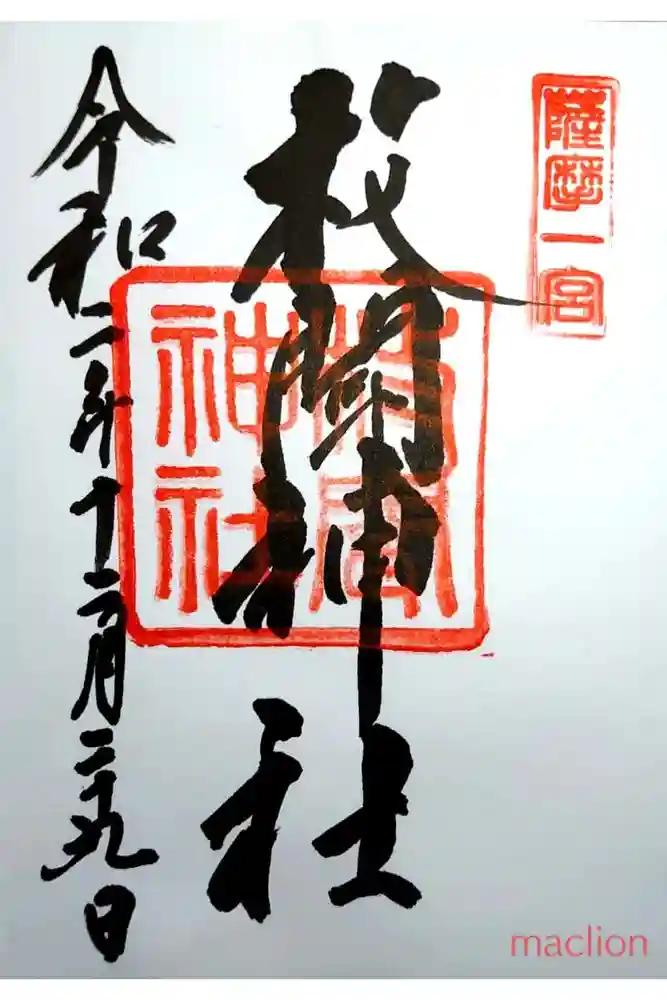 薩摩一宮
枚聞神社
枚聞
神社
令和二年十二月二十九日
maclion